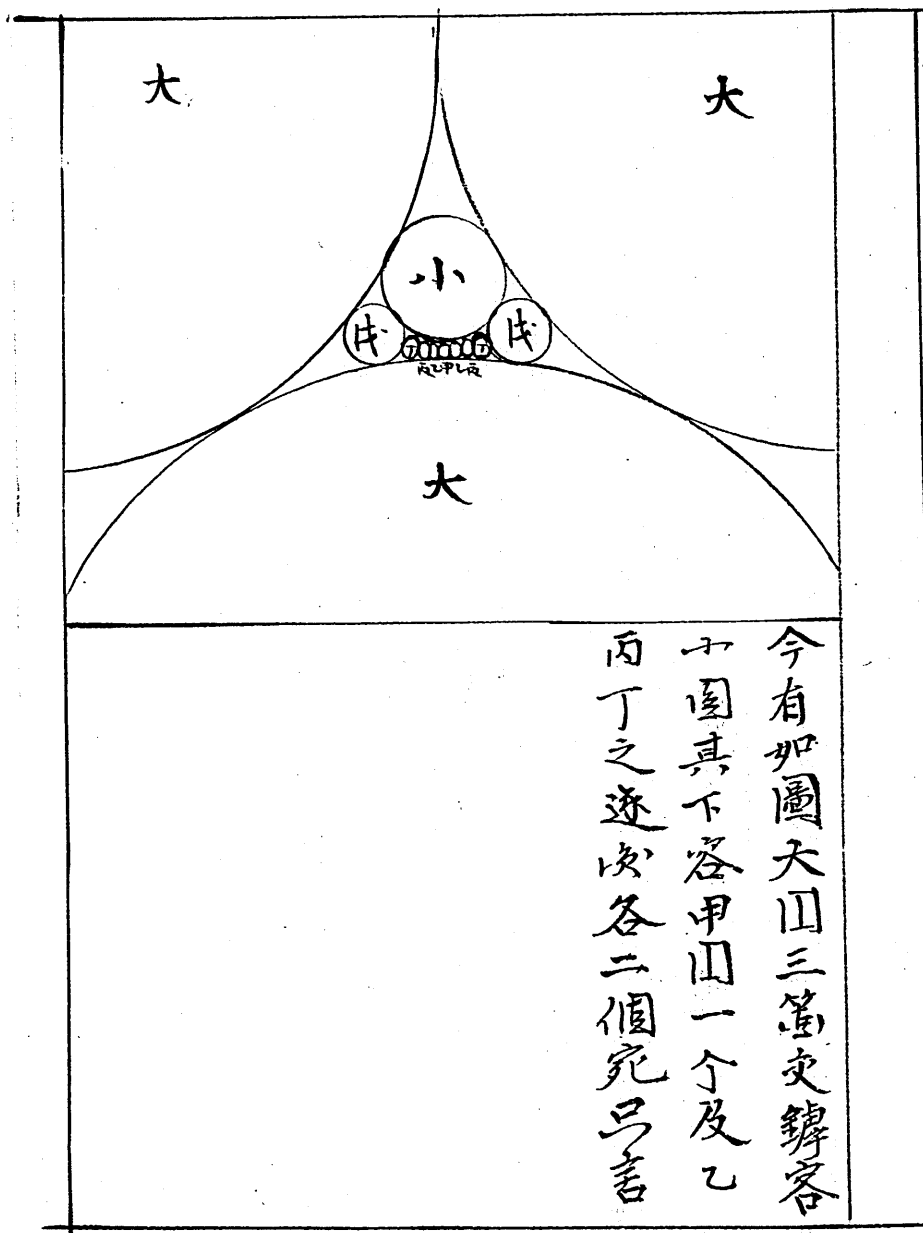 大
大
小
戊
戊
丁
丁
丙乙甲乙丙
大
今有如圖大円三箇交罅容
小圓其下容甲円一个及乙
丙丁之逐次各二個宛只言